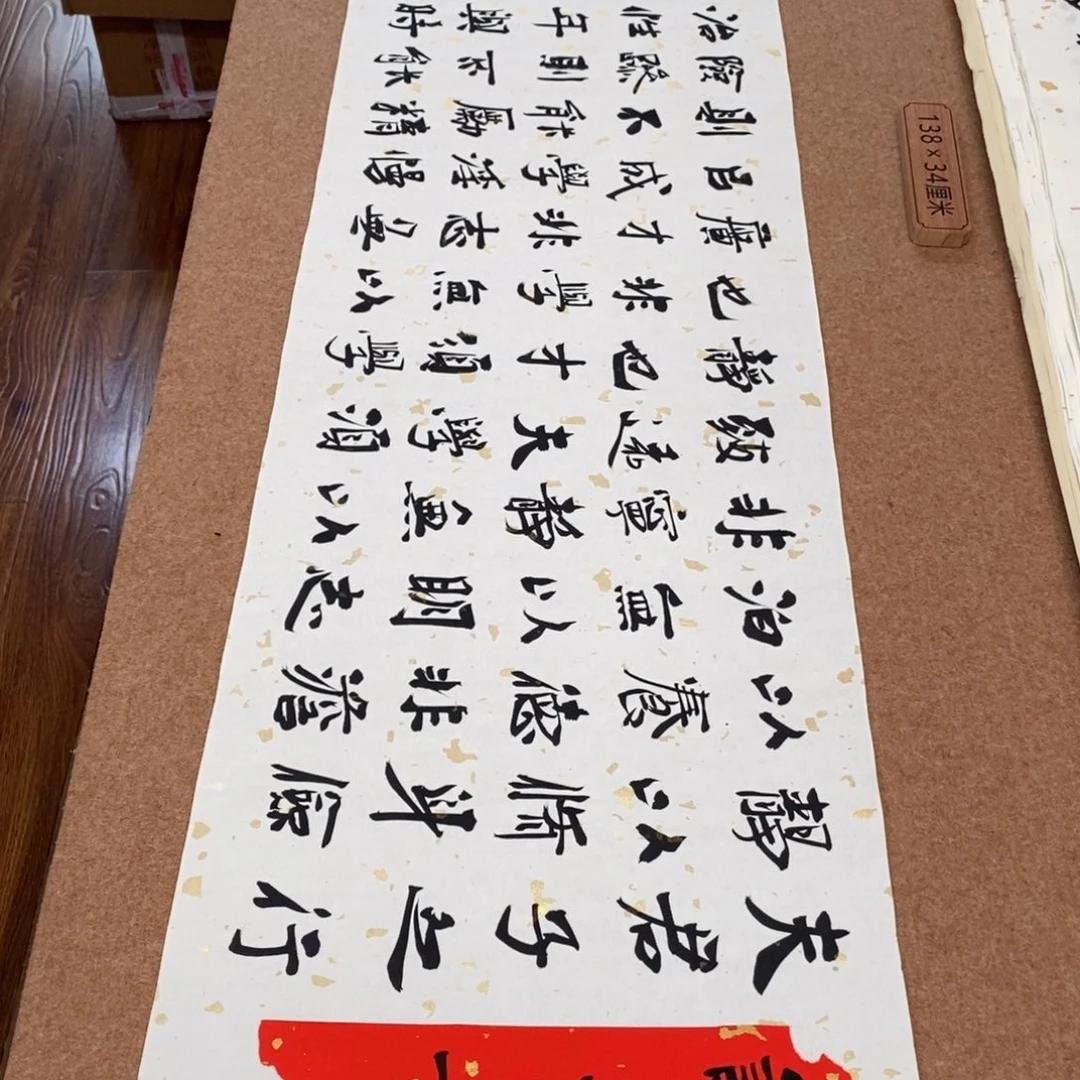 夫君子之行
静以脩身儉
以養德非澹
泊無以明志
非寧静無以
致遠夫學須
静也才須學
也非學無以
廣才非志無
㠯成學滛慢
則不能勵精
險躁則不能
治性年與時
138×34厘米